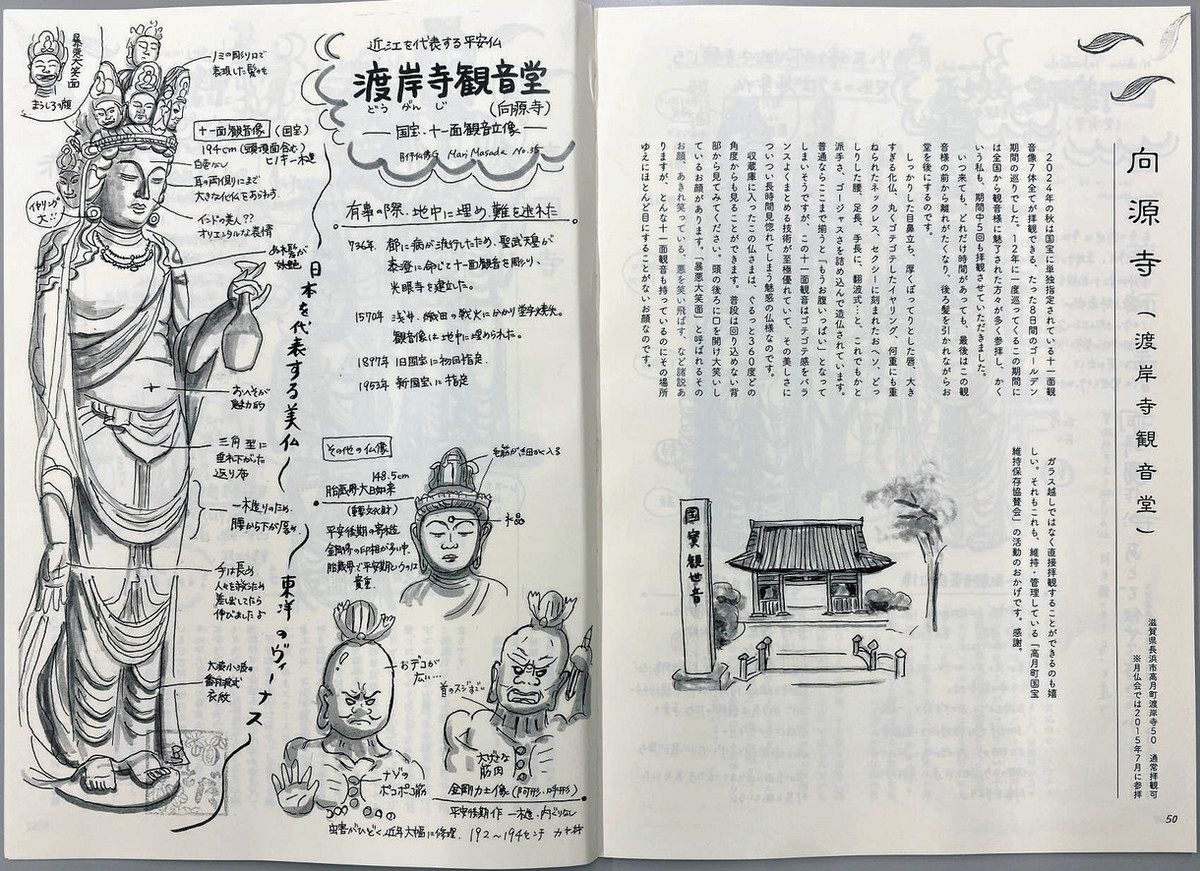 向源寺（渡岸寺観音堂）
滋賀県長浜市高月町渡岸寺50　通常拝観可
※月仏会では2015年7月に参拝
2024年の秋は国宝に単独指定されている十一面観
音像7体全てが拝観できる、たった8日間のゴールデン
期間の巡りでした。12年に一度巡ってくるこの期間に
は全国から観音様に魅了された方々が多く参拝し、かく
いう私も、期間中5回も拝観させていただきました。
いつ来ても、どれだけ時間があっても、最後はこの観
音様の前から離れがたくなり、後ろ髪を引かれながらお
堂を後にするのです。
しっかりした目鼻立ち、厚くぽってりとした唇、大き
すぎる化仏、丸くゴテゴテしたイヤリング、何重にも重
ねられたネックレス、セクシーに刻まれたおヘソ、どっ
しりした腰、足長、手長に、翻波式…と、これでもかと
派手さ、ゴージャスさを詰め込んで造仏されています。
普通ならここまで揃うと「もうお腹いっぱい」となって
しまいそうですが、この十一面観音はゴテゴテ感をバラ
ンスよくまとめる技術が至極優れていて、その美しさに
ついつい長時間見惚れてしまう魅惑の仏様なのです。
収蔵庫に入ったこの仏さまは、ぐるっと360度どの
角度からも見ることができます。普段は回り込めない背
部から見てみてください。頭の後ろに口を開け大笑いし
ているお顔があります。「暴悪大笑面」と呼ばれるその
お顔、あきれ笑っている、悪を笑い飛ばす、など諸説あ
りますが、とんな十一面観音も持っているのにその場所
ゆえにほとんど目にすることがないお顔なのです。
ガラス越しではなく直接拝観することができるのも嬉
しい。それもこれも、維持・管理している「高月町国宝
維持保存協賛会」の活動のおかげです。感謝。
國寳観世音
50
近江を代表する平安仏
渡岸寺観音堂
どうがんじ
（向源寺）
国宝・十一面観音立像
Mari Masada No.35
有事の際、地中に埋め、難を逃れた
736年 都に病が流行したため、聖武天皇が
泰澄に命じて十一面観音を彫り、
光眼寺を建立した。
1570年 浅井・織田の戦火にかかり堂宇焼失。
観音像は土中に埋められた。
1897年 旧国宝に初回指定。
1953年 新国宝に指定
暴悪大笑面
まうしろの顔
ノミの彫り口で
表現した髪の毛
十一面観音像（国宝）
194cm（頭頂面含む）
ヒノキ一木造
白毫なし
耳の両側にまで
大きな化仏をあらわす
イヤリング
大!!
インドの美人??
オリエンタルな表情
日本を代表する美仏
東洋のヴィーナス
おへそが
魅力的
三角型に
垂れ下がった
返り布
一木造りのため
腰から下が厚め
手は長め
人々を救うため
差し出してたら
伸びましたよ
大波小波の
翻波式
衣紋
その他の仏像
148.5cm
胎蔵界大日如来
（重要文化財）
平安後期の寄木造
金剛界の印相が多い中、
胎蔵界で平安期というのは
貴重
毛筋が細かく入る
水晶
おデコが
広い…
首のスジすごい
大げさな
筋肉
ナゾの
ポコポコ筋
金剛力士像（阿形・吽形）
平安後期作 一木造、内ぐりなし
虫害がひどく近年大幅に修理。192～194センチ